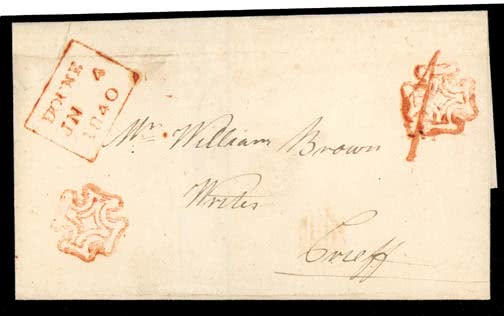 DOUNE
JN 4
1840
1
Mr. William Brown
Writer
Crieff